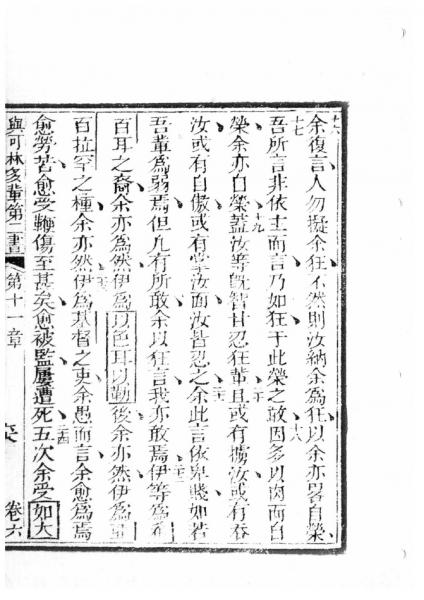 十六
余復言人勿擬余狂不然則汝納余為狂以余亦畧自榮
十七 十八
吾所言非依主而言乃如狂于此榮之敢因多以肉而自
十九
榮余亦自榮蓋汝等既智甘忍狂輩且或有擄汝或有吞
二十
汝或有自傲或有掌汝面汝皆忍之余此言依卑賤如若
二一
吾輩為弱焉但凡有所敢余以狂言我亦敢焉伊等為希
二二
百耳之裔余亦為然伊為以色耳以勒後余亦然伊為亞
百拉罕之種余亦然伊為基督之吏余愚而言余愈為焉
二三
愈勞苦愈受鞭傷至甚矣愈被監屢遭死五次余受如大
二四
與可林多輩第二書 第十一章 卷六